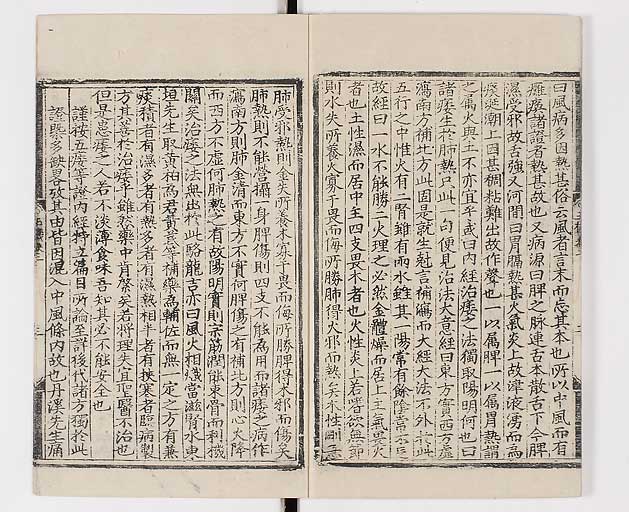 曰風病多因熱甚俗云風者言末而忘其本也所以中風而有
癱瘓諸證者熱甚故也又病源曰脾之脉連舌本散舌下今脾
濕受邪故舌強又河間曰胃膈熱甚火氣炎上故津液湧而為
痰涎潮上因其稠粘難出故作聲也一以屬脾一以屬胃熱謂
之屬火與土不亦宜乎或曰內經治痿之法獨取陽明何也曰
諸痿生於肺熱只此一句便見治法大意經曰東方實西方虛
瀉南方補北方此固是就生剋言補瀉而大經大法不外於此
五行之中惟火有二腎雖有兩水維其一陽常有餘陰常不足
故經曰一水不能勝二火理之必然金體燥而居上主氣畏火
者也土性濕而居中主四支畏木者也火性炎上若嗜欲無節
則水失所養火寡于畏而侮所勝肺得火邪而熱矣木性剛急
肺受邪熱則金失所養木寡于畏而侮所勝脾得木邪而傷矣
肺熱則不能管攝一身脾傷則四支不能為用而諸痿之病作
瀉南方則肺金清而東方不實何脾傷之有補北方則心火降
而西方不虛何肺熱之有故陽明實則宗筋潤能束骨而利機
關矣治痿之法無出於此駱龍吉亦曰風火相熾當滋腎水東
垣先生取黃柏為君黃芪等補藥為輔佐而無一定之方有兼
痰積者有濕多者有熱多者有濕熱相半者有挾寒者臨病製
方其善於治痿乎雖然藥中肯綮矣若將理失宜聖醫不治也
但是患痿之人若不淡薄食味吾知其必不能安全也
謹按五痿等證內經特立篇目所論至詳後代諸方獨於此
證槩多缺畧攷其由皆因混入中風條內故也丹溪先生痛